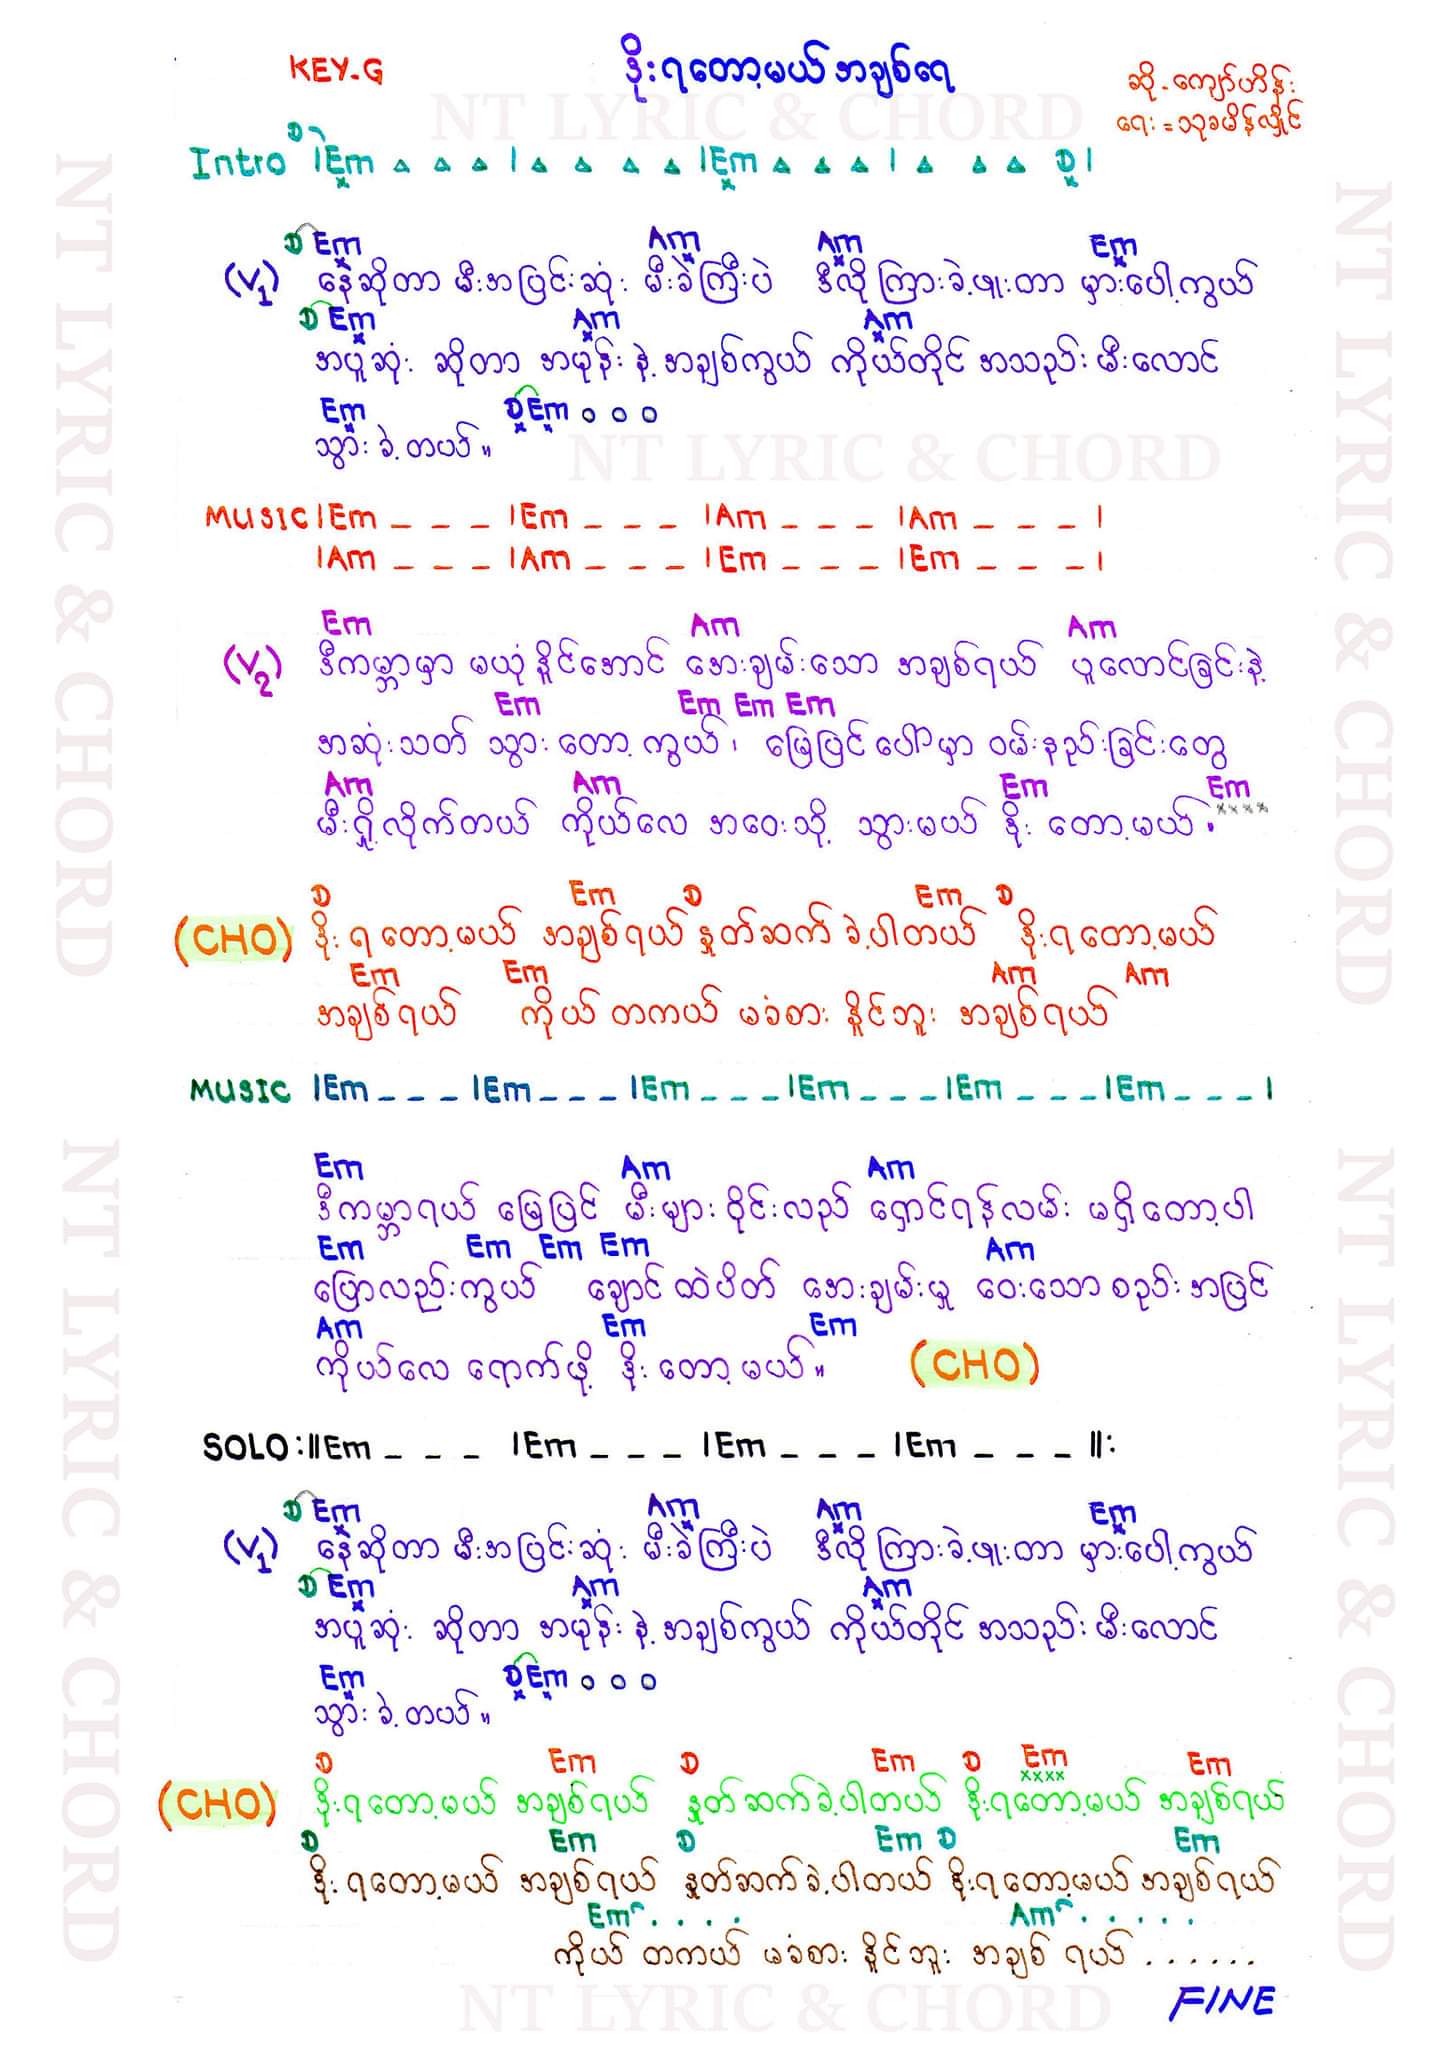 KEY-G
ဒိုးရတော့မယ် အချစ်ရေ
ဆို - ကျော်ဟိန်း
ရေး = သုခမိန်လှိုင်
NT LYRIC & CHORD
D
Intro |Em △ △ △ | △ △ △ △ |Em △ △ △ | △ △ △ D |
D Em Am Am Em
(V1) နေဆိုတာ မီးအပြင်းဆုံး မီးခဲကြီးပဲ ဒီလို ကြားခဲ့ဖူးတာ မှားပေါ့ကွယ်
D Em Am Am
အပူဆုံး ဆိုတာ အမုန်း နဲ့ အချစ်ကွယ် ကိုယ်တိုင် အသည်း မီးလောင်
Em D Em o o o
သွား ခဲ့ တယ်။
NT LYRIC & CHORD
MUSIC |Em _ _ _ |Em _ _ _ |Am _ _ _ |Am _ _ _ |
|Am _ _ _ |Am _ _ _ |Em _ _ _ |Em _ _ _ |
Em Am Am
(V2) ဒီကမ္ဘာမှာ မယုံနိူင်အောင် အေးချမ်းသော အချစ်ရယ် ပူလောင်ခြင်းနဲ့
Em Em Em Em
အဆုံးသတ် သွား တော့ ကွယ်၊ မြေပြင် ပေါ်မှာ ဝမ်းနည်းခြင်းတွေ
Am Am Em Em
မီးရှို့လိုက်တယ် ကိုယ်လေ အဝေးသို့ သွားမယ် ဒိုး တော့မယ်. xxxx
D Em D Em D
(CHO) ဒိုး ရ တော့မယ် အချစ်ရယ် နှုတ်ဆက် ခဲ့ပါတယ် ဒိုးရတော့မယ်
Em Em Am Am
အချစ်ရယ် ကိုယ် တကယ် မခံစား နိူင်ဘူး အချစ်ရယ်
MUSIC |Em _ _ _ |Em _ _ _ |Em _ _ _ |Em _ _ _ |Em _ _ _ |Em _ _ _ |
Em Am Am
ဒီကမ္ဘာရယ် မြေပြင် မီးများ ဝိုင်းလည် ရှောင်ရန်လမ်း မရှိတော့ပါ
Em Em Em Em Am
ပြောလည်းကွယ် ချောင် ထဲပိတ် အေးချမ်းမှု ဝေးသော စည်း အပြင်
Am Em Em
ကိုယ်လေ ရောက်ဖို့ ဒိုး တော့ မယ်။ (CHO)
SOLO :||Em _ _ _ |Em _ _ _ |Em _ _ _ |Em _ _ _ ||:
D Em Am Am Em
(V1) နေဆိုတာ မီးအပြင်းဆုံး မီးခဲကြီးပဲ ဒီလို ကြားခဲ့ဖူးတာ မှားပေါ့ကွယ်
D Em Am Am
အပူဆုံး ဆိုတာ အမုန်း နဲ့ အချစ်ကွယ် ကိုယ်တိုင် အသည်း မီးလောင်
Em D Em o o o
သွား ခဲ့ တယ်။
D Em D Em D Em Em
xxxx
(CHO) ဒိုးရတော့မယ် အချစ်ရယ် နှုတ်ဆက်ခဲ့ပါတယ် ဒိုးရတော့မယ် အချစ်ရယ်
D Em D Em D Em
ဒိုး ရတော့မယ် အချစ်ရယ် နှုတ်ဆက်ခဲ့ပါတယ် ဒိုးရတော့မယ် အချစ်ရယ်
Em . . . . Am . . . . .
ကိုယ် တကယ် မခံစား နိူင်ဘူး အချစ် ရယ် . . . . . .
FINE
NT LYRIC & CHORD
NT LYRIC & CHORD
NT LYRIC & CHORD
NT LYRIC & CHORD
NT LYRIC & CHORD